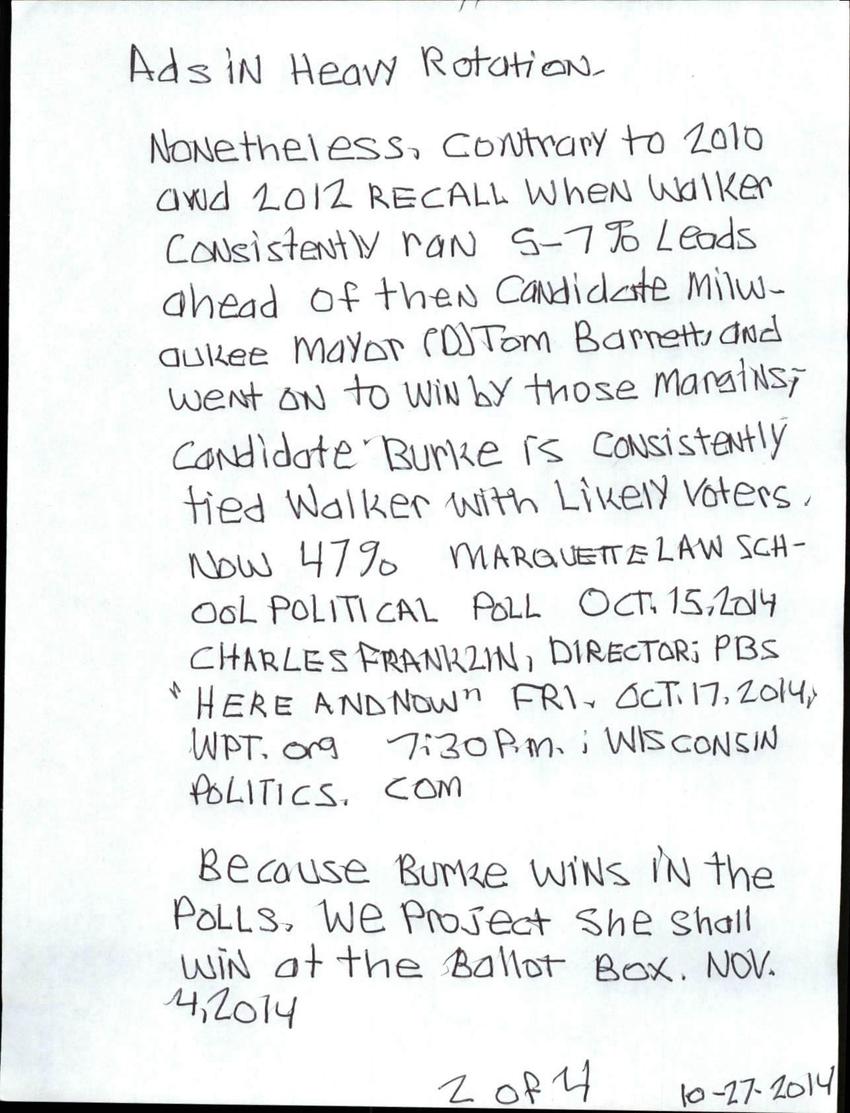 Ads iN Heavy Rotation.
NoNetheless, Contrary to 2010
and 2012 RECALL WheN Walker
Consistently ran 5-7% Leads
ahead of then Candidate Milw-
aukee Mayor (D)Tom Barrett, and
went on to win by those Margins;
Candidate Burke is Consistently
tied Walker with Likely Voters.
Now 47% MARQUETTE LAW SCH-
OOL POLITICAL POLL OCT. 15, 2014
CHARLES FRANKLIN, DIRECTOR; PBS
"HERE AND NOW" FRI. OCT. 17, 2014,
WPT. org 7:30 P.m. ; WISCONSIN
POLITICS. COM
Because Burke WiNS iN the
POLLS, We Project She Shall
WiN at the Ballot Box. NOV.
4, 2014
2 of 4 10-27-2014